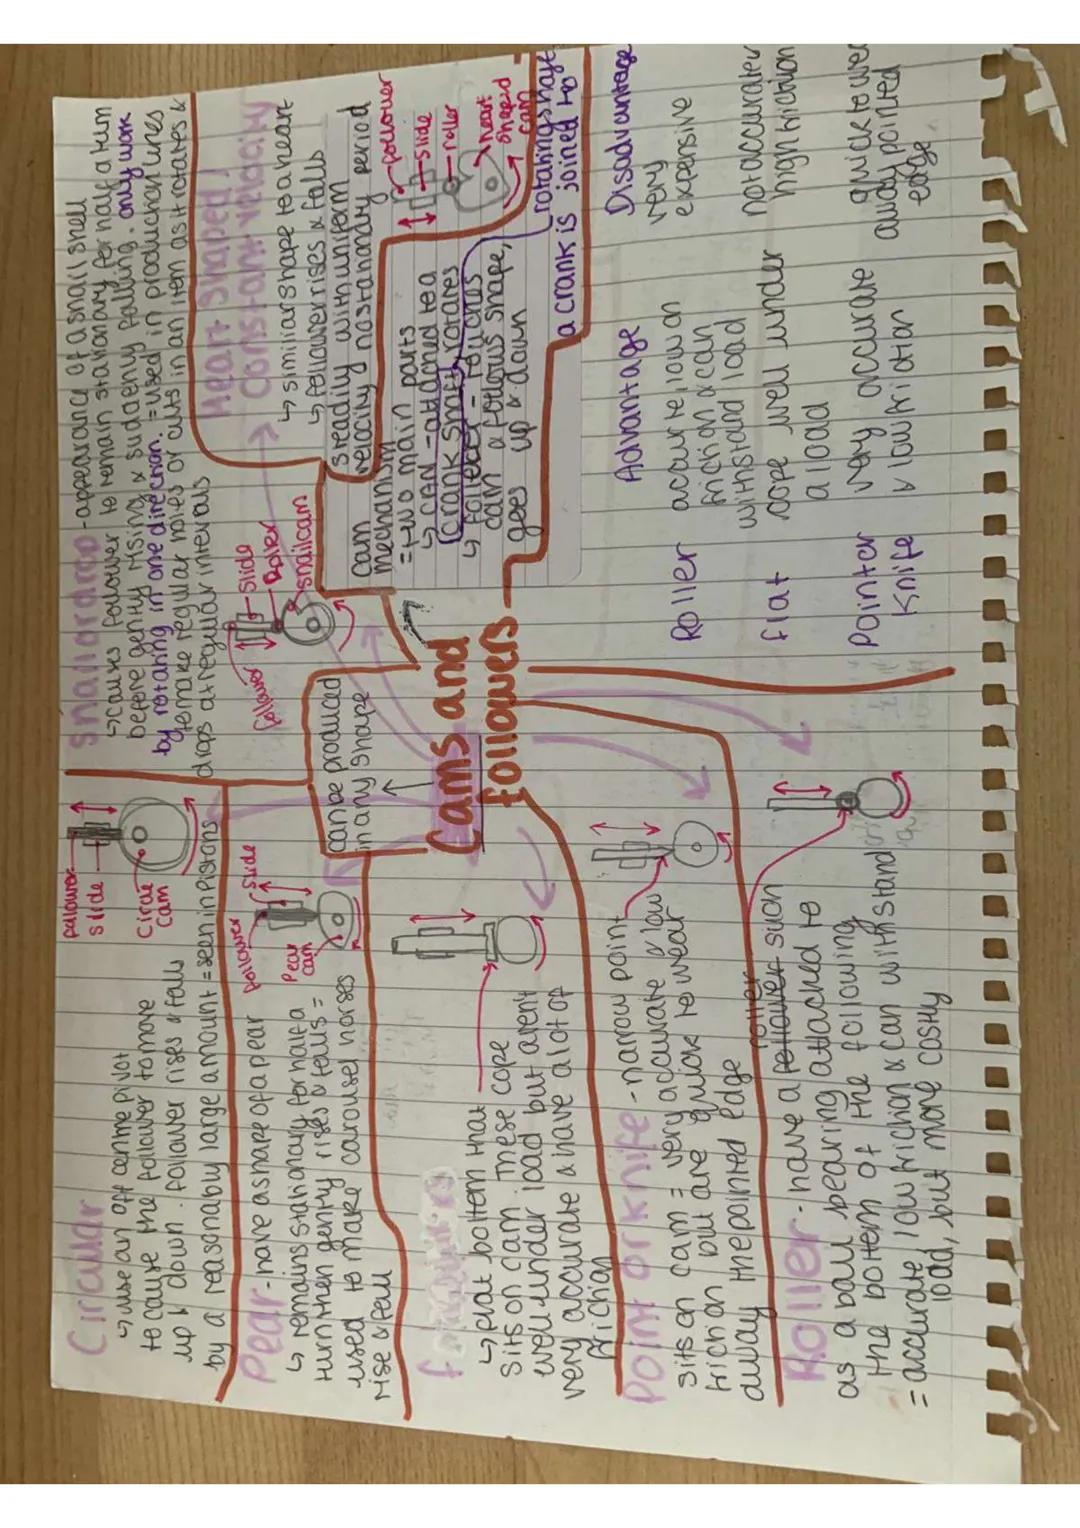 Circular
↳ use an off centre pivot
to cause the follower to move
up & down. follower rises & falls
by a reasonably large amount = seen in pistons
follower
slide
Circle
cam
Pear - have a shape of a pear
↳ remains stationary for half a
turn then gently rises & falls =
used to make carousel horses
rise & fall
follower
slide
Pear
cam
↳ flat bottem that
sits on cam. These cope
well under load but aren't
very accurate & have a lot of
friction
Point or knife - narrow point
sits on cam = very accurate & low
friction but are quick to wear
away the pointed edge
Roller - have a follower such
roller
as a ball bearing attached to
the bottem of the following
= accurate, low friction & can withstand
load, but more costly
can be produced
in any shape
Cams and
followers
Snail or drop - appearance of a snail shell
↳ causes follower to remain stationary for half a turn
before gently rising & suddenly falling. only work
by rotating in one direction. = used in production lines
to make regular holes or cuts in an item as it rotates &
drops at regular intervals
follower
slide
Roller
snail cam
Heart Shaped /
Constant velocity
↳ similiar shape to a heart
↳ follower rises & falls
steadily with uniform
velocity & no stationary period
follower
slide
roller
heart
shaped
cam
cam
mechanism
= two main parts
↳ cam - attached to a
crank shaft / rotates
↳ follower - touches
cam & follows shape,
goes up & down
rotating shaft
a crank is joined to
Advantage
Disadvantage
Roller
accurate low on
friction & can
withstand load
very
expensive
flat
cope well under
a load
not accurate
high friction
Pointer
Knife
very accurate
& low friction
quick to wear
away pointed
edge